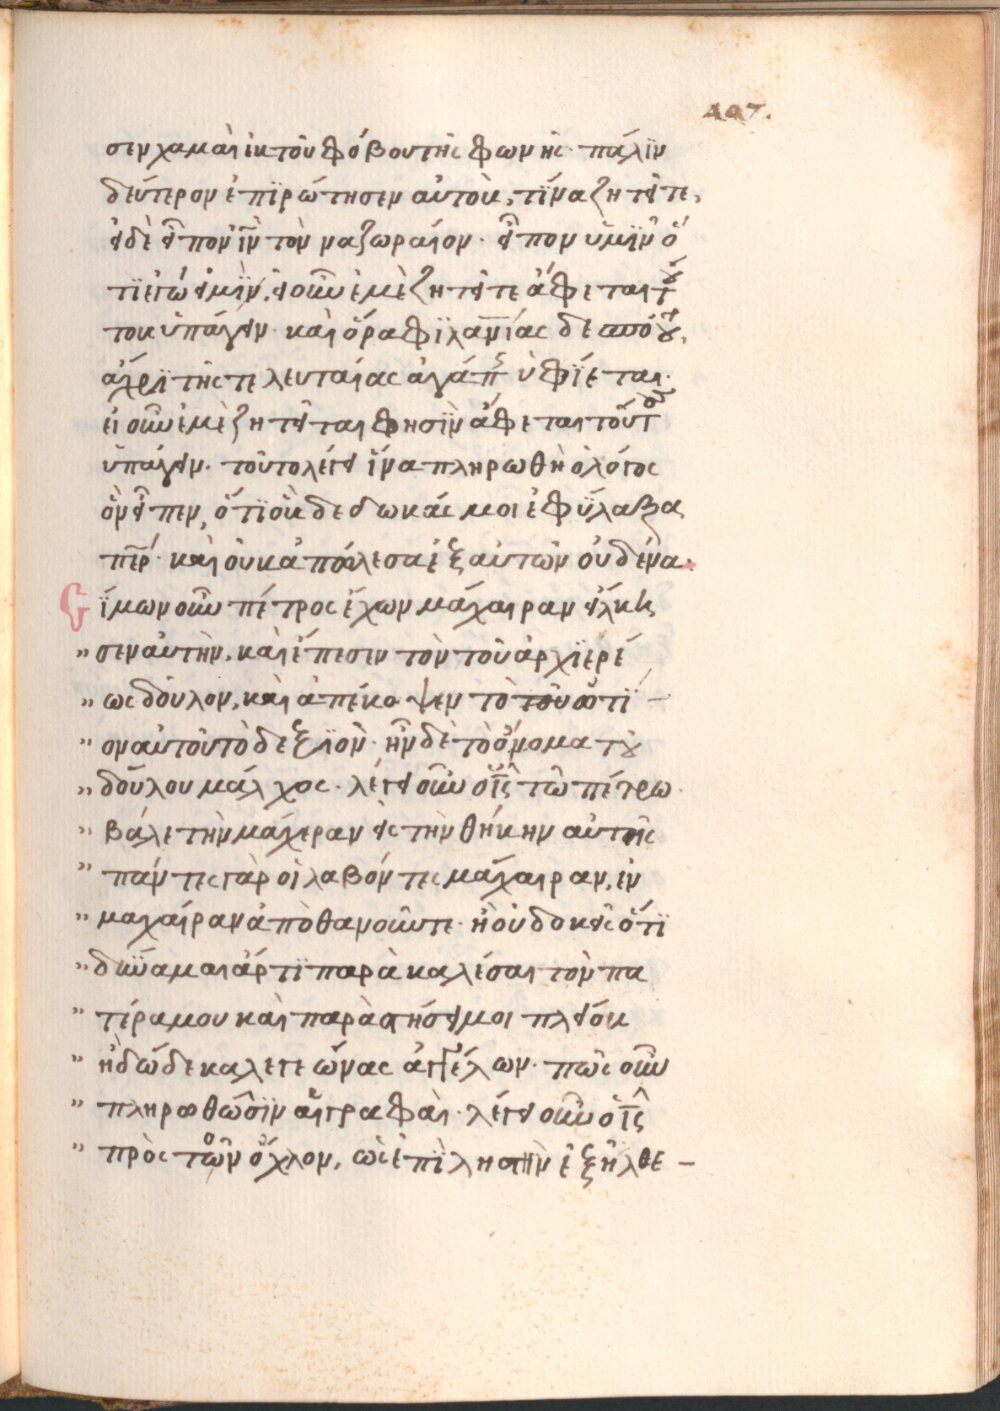 407.
σεν χαμαὶ ἐκ τοῦ φόβου τῆς φωνῆς· πάλϊν
δεύτερον ἐπϊρώτησεν αὐτοὺς, τῒνα ζητεῖτε,
εἰδὲ εἶπον ἰῦν τὸν ναζωραίον· εἶπον ὑμῖν ὅ
τϊ ἐγώ εἰμῒν, εἰ οὖν ἐμὲ ζητεῖτε ἄφεται τού
τους ὑπάγειν· καὶ ὅρα φϊλανῑας δεσπότου,
ἄχρϊ τῆς τελευταίας ἀγάπης ὑφϊεται·
εἰ οὖν ἐμὲ ζητεῖται φησῒν ἄφεται τούτους
ὑπάγειν· τοῦτο λέγει ἵνα πληρωθῆ ὁ λόγος
ὃν εἶπεν, ὅτϊ οὓς δεδωκάς μοι ἐφῢλαξα
περ· καὶ οὐκ ἀπόλεσα ἐξ αὐτῶν οὐδένα·
Σίμων οὖν πέτρος ἔχων μάχαιραν εἵλκη
" σεν αὐτὴν, καὶ ἔπεσεν τὸν τοῦ ἀρχϊερέ
" ως δοῦλον, καὶ ἀπέκοψεν τὸ του ὠτϊ –
" ον αὐτοῦ τὸ δεξϊὸν· ἦν δὲ τὸ ὄνομα τοῦ
" δούλου μάλχος· λέγει οὖν ὁ ἰς τῶ πέτρω·
" βάλε τὴν μάχεραν εἰς τὴν θήκην αὐτῆς
" πάντες γὰρ οἱ λαβόντες μάχαιραν, ἐν
" μαχαίραν ἀποθανοῦντε· ἢ οὐ δοκεῖς ὅτϊ
" δῢναμαι ἄρτϊ παρὰκαλέσαι τὸν πα
" τέρα μου καὶ παρὰστήσει μοι πλείους
" ἢ δώδεκα λεγεῶνας ἀγγέλων· πῶς οὖν
" πληρωθῶσϊν αἱ γραφαὶ· λέγει οὖν ὁ ἰς
" πρὸς τὸν ὄχλον, ὡς ἐπῒ ληστὴν ἐξήλθε –